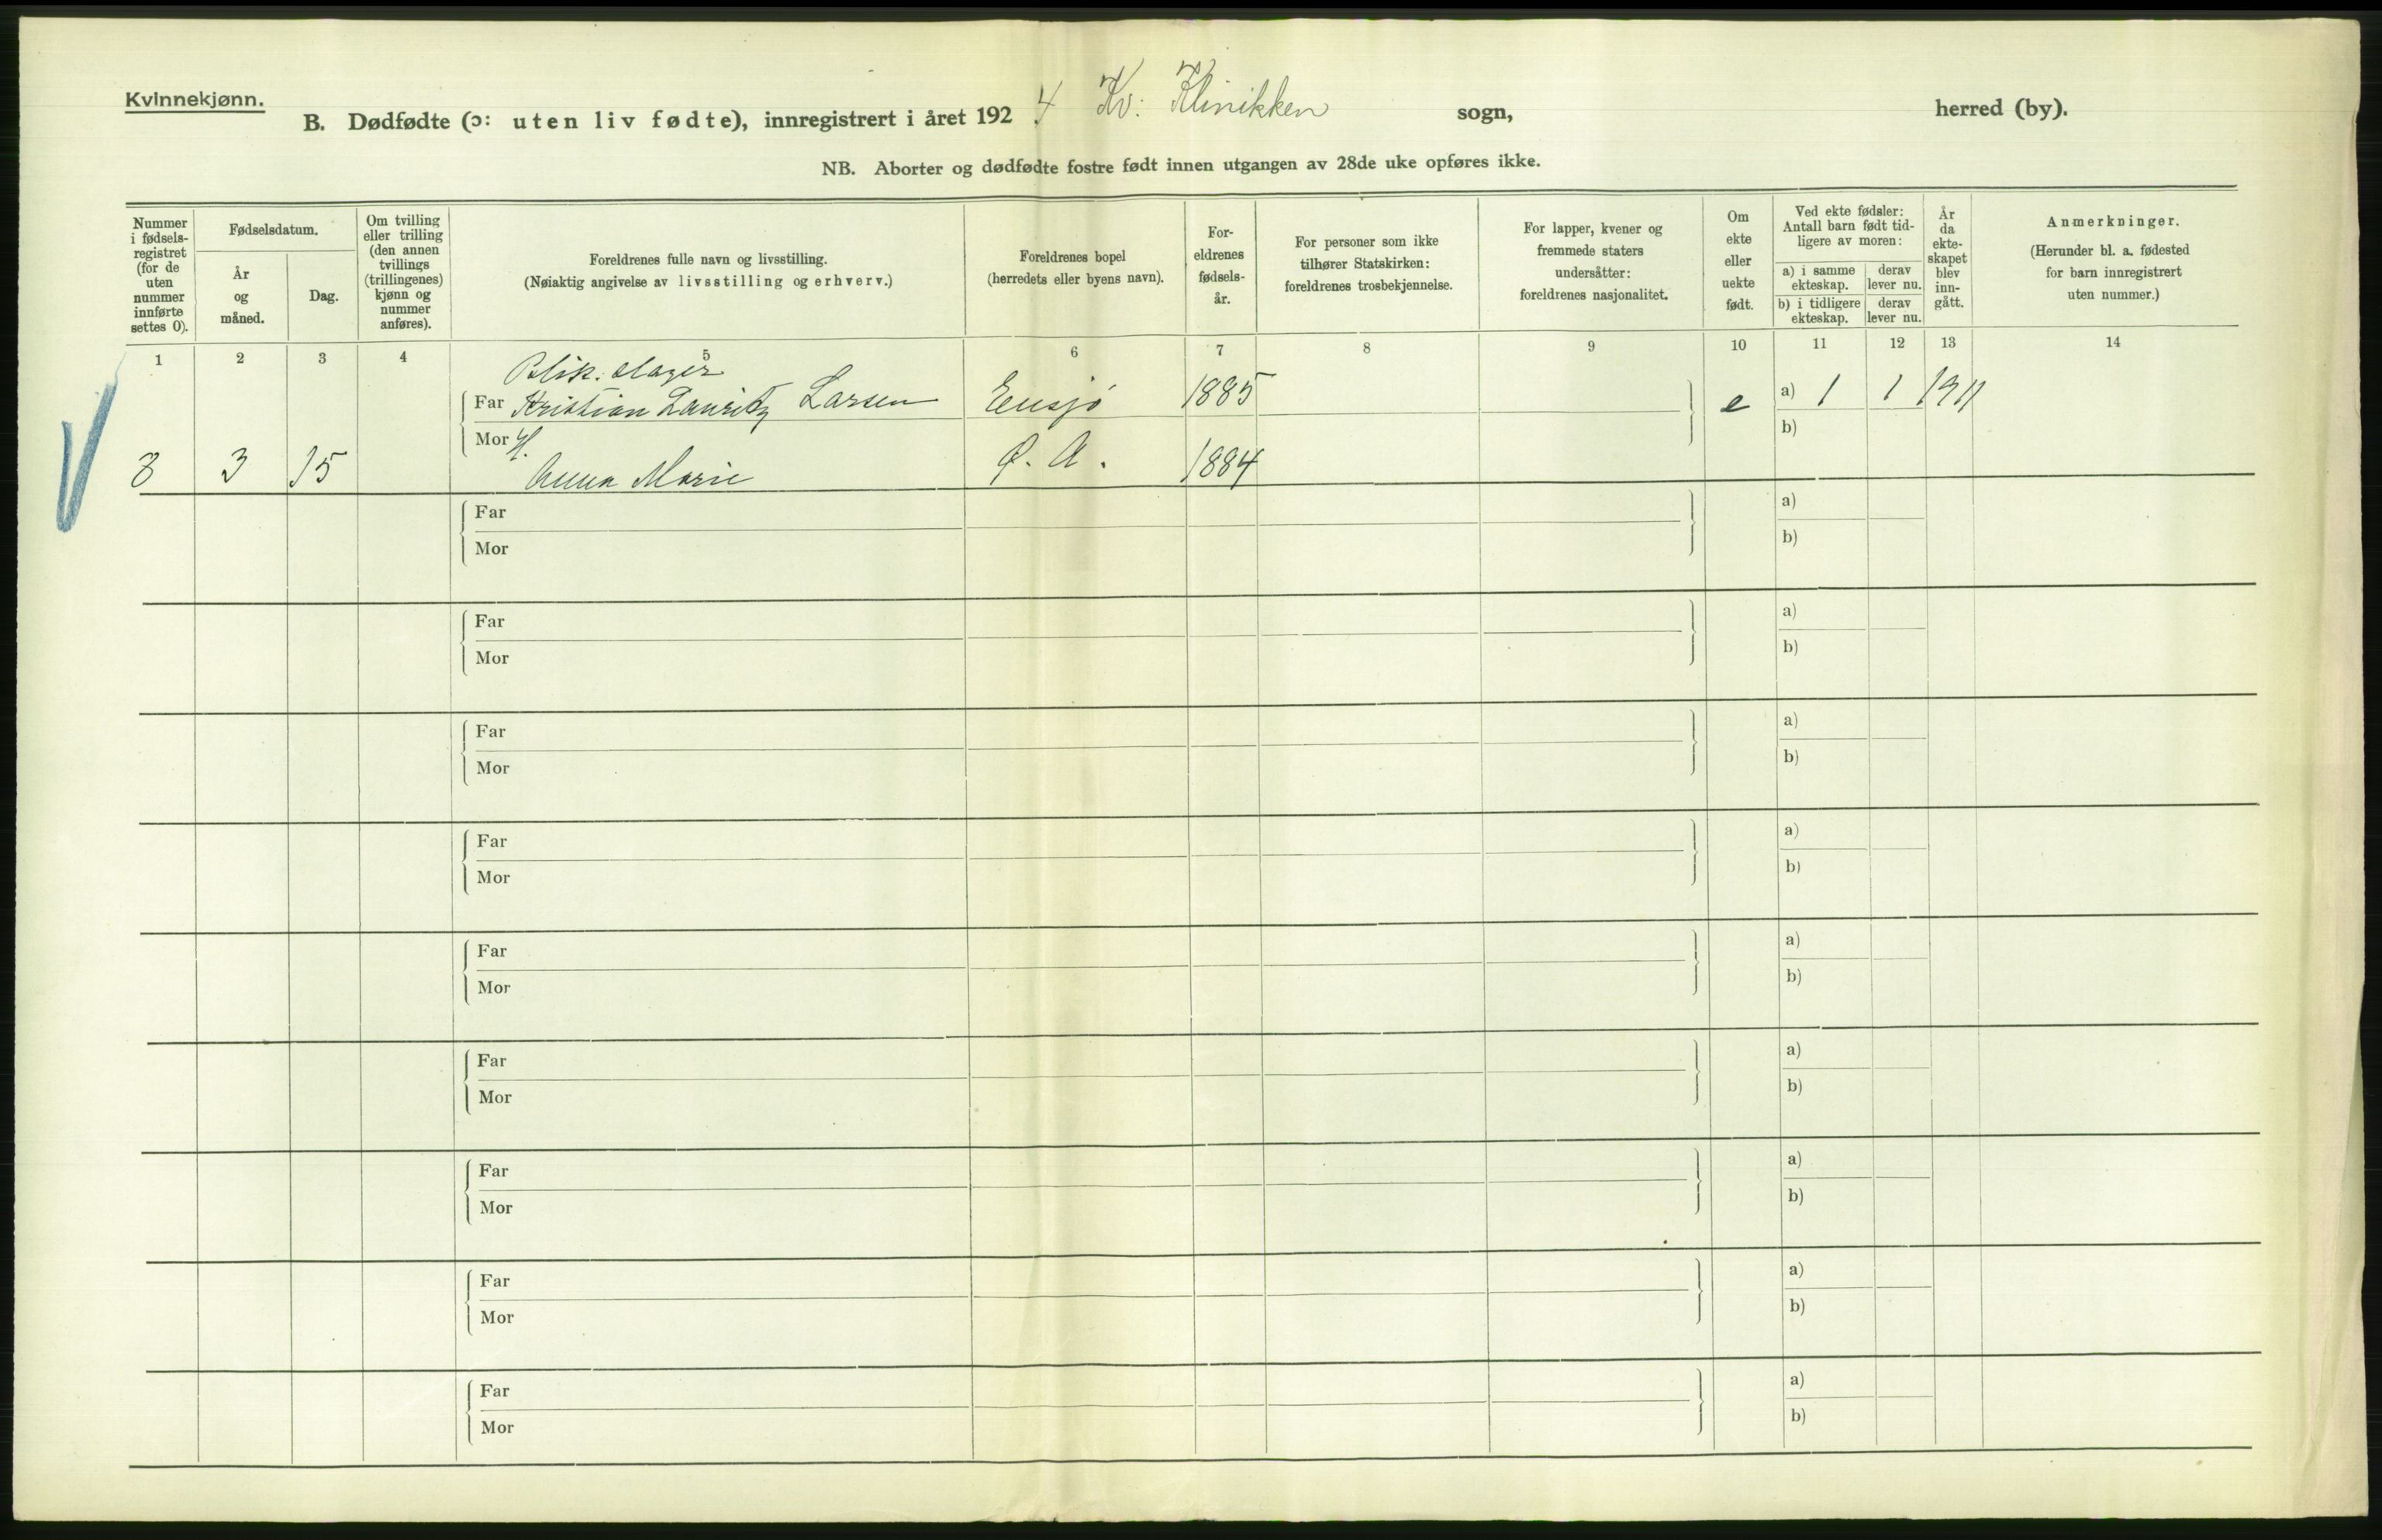 Kvinnekjønn.
B. Dødfødte (ɔ: uten liv fødte), innregistrert i året 1924 Kv: Klinikken sogn, herred (by).
NB. Aborter og dødfødte fostre født innen utgangen av 28de uke opføres ikke.
Nummer
i fødsels-
registret
(for de
uten
nummer
innførte
settes 0).
Fødselsdatum.
År
og
måned.
Dag.
Om tvilling
eller trilling
(den annen
tvillings
(trillingenes)
kjønn og
nummer
anføres).
Foreldrenes fulle navn og livsstilling.
(Nøiaktig angivelse av livsstilling og erhverv.)
Foreldrenes bopel
(herredets eller byens navn).
For-
eldrenes
fødsels-
år.
For personer som ikke
tilhører Statskirken:
foreldrenes trosbekjennelse.
For lapper, kvener og
fremmede staters
undersåtter:
foreldrenes nasjonalitet.
Om
ekte
eller
uekte
født.
Ved ekte fødsler:
Antall barn født tid-
ligere av moren:
a) i samme
ekteskap.
derav
lever nu.
b) i tidligere
ekteskap.
derav
lever nu.
År
da
ekte-
skapet
blev
inn-
gått.
Anmerkninger.
(Herunder bl. a. fødested
for barn innregistrert
uten nummer.)
1 2 3 4 5 6 7 8 9 10 11 12 13 14
Blik. slager
Far Kristian Lauritz Larsen Ensjø 1885 e a) 1 1 1911
Mor H. b)
8 3 15 Anna Marie Ø. A. 1884
Far a)
Mor b)
Far a)
Mor b)
Far a)
Mor b)
Far a)
Mor b)
Far a)
Mor b)
Far a)
Mor b)
Far a)
Mor b)
Far a)
Mor b)
Far a)
Mor b)